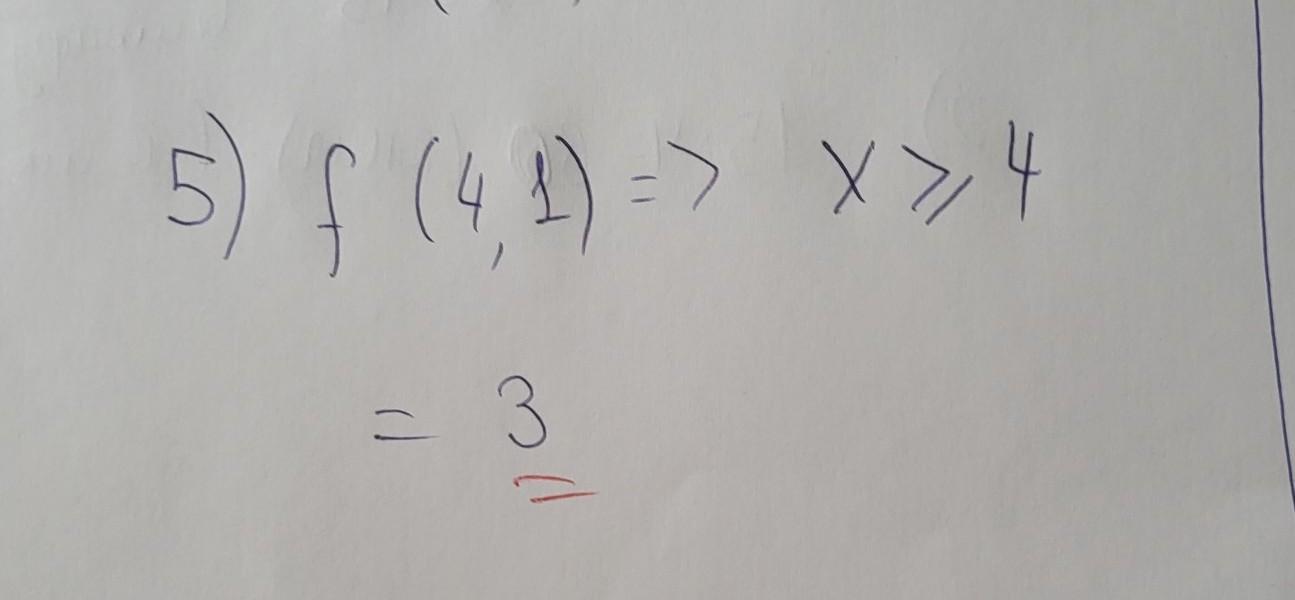 5) f (4,1) => x ⩾ 4
= 3